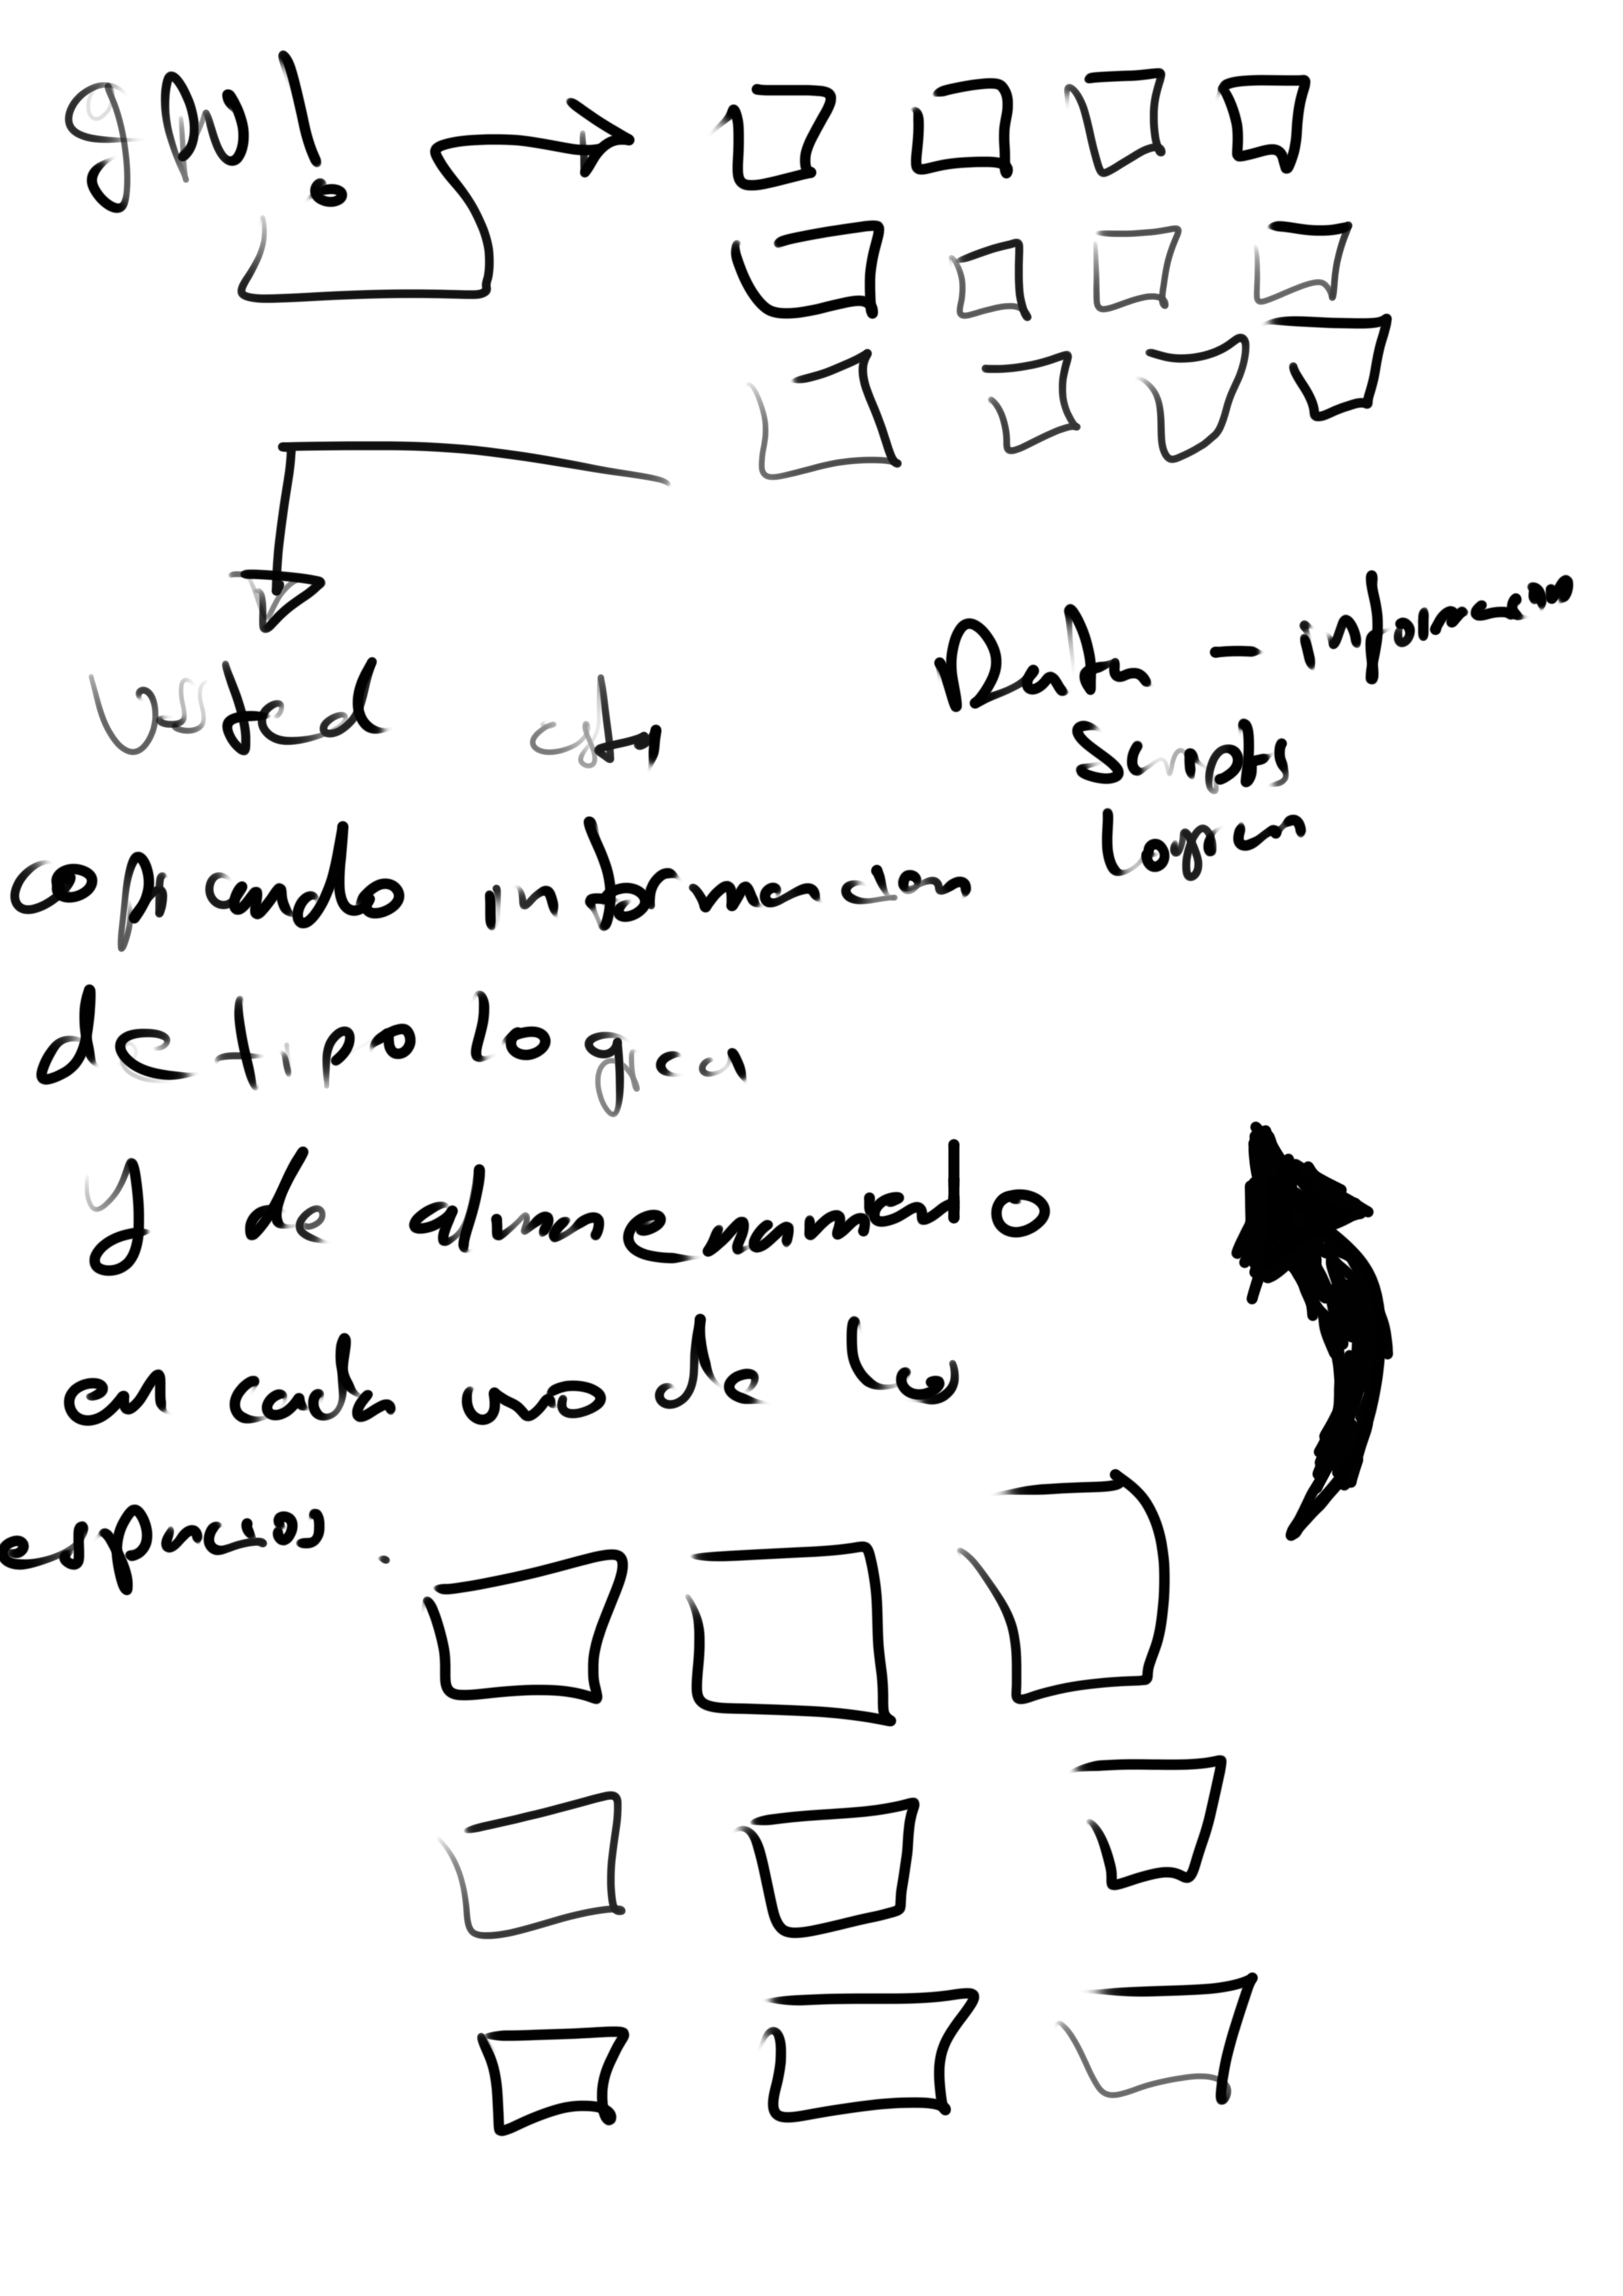 gpu!
Data - informacion
Scripts
Logica
Usted esta
copiando informacion
de tipo logica
y de almacenamiento
en cada uno de los
espacios.